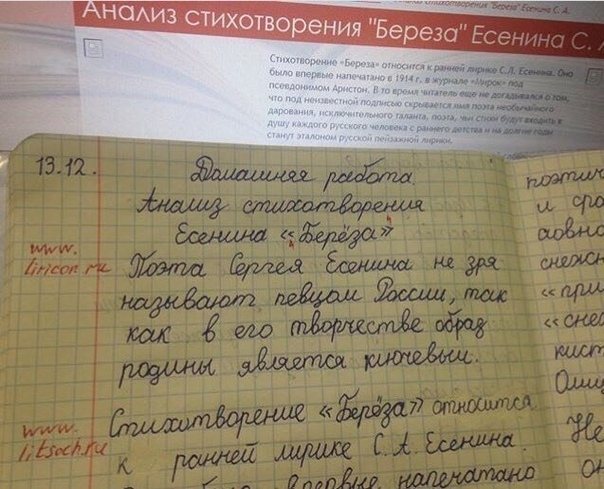 стихотворения "Береза" Есенина С. А.
Анализ стихотворения "Береза" Есенина С. А
Стихотворение «Береза» относится к ранней лирике С.Л. Есенина. Оно
было впервые напечатано в 1914 г. в журнале «Мирок» под
псевдонимом Аристон. В то время читатель еще не догадывался о том,
что под неизвестной подписью скрывается имя поэта необычайного
дарования, исключительного таланта, поэта, чьи стихи будут входить в
душу каждого русского человека с раннего детства и на долгие годы
станут эталоном русской пейзажной лирики.
13.12.
Домашняя работа
Анализ стихотворения
Есенина «Берёза»
www.
liricon.ru
Поэта Сергея Есенина не зря
называют певцом России, так
как в его творчестве образ
родины является ключевым.
www.
litsoch.ru
Стихотворение «Берёза» относится
к ранней лирике С. А. Есенина.
впервые напечатано
поэтич
и сра
снежн
«при
«сне
кист
Олиц
Не
он